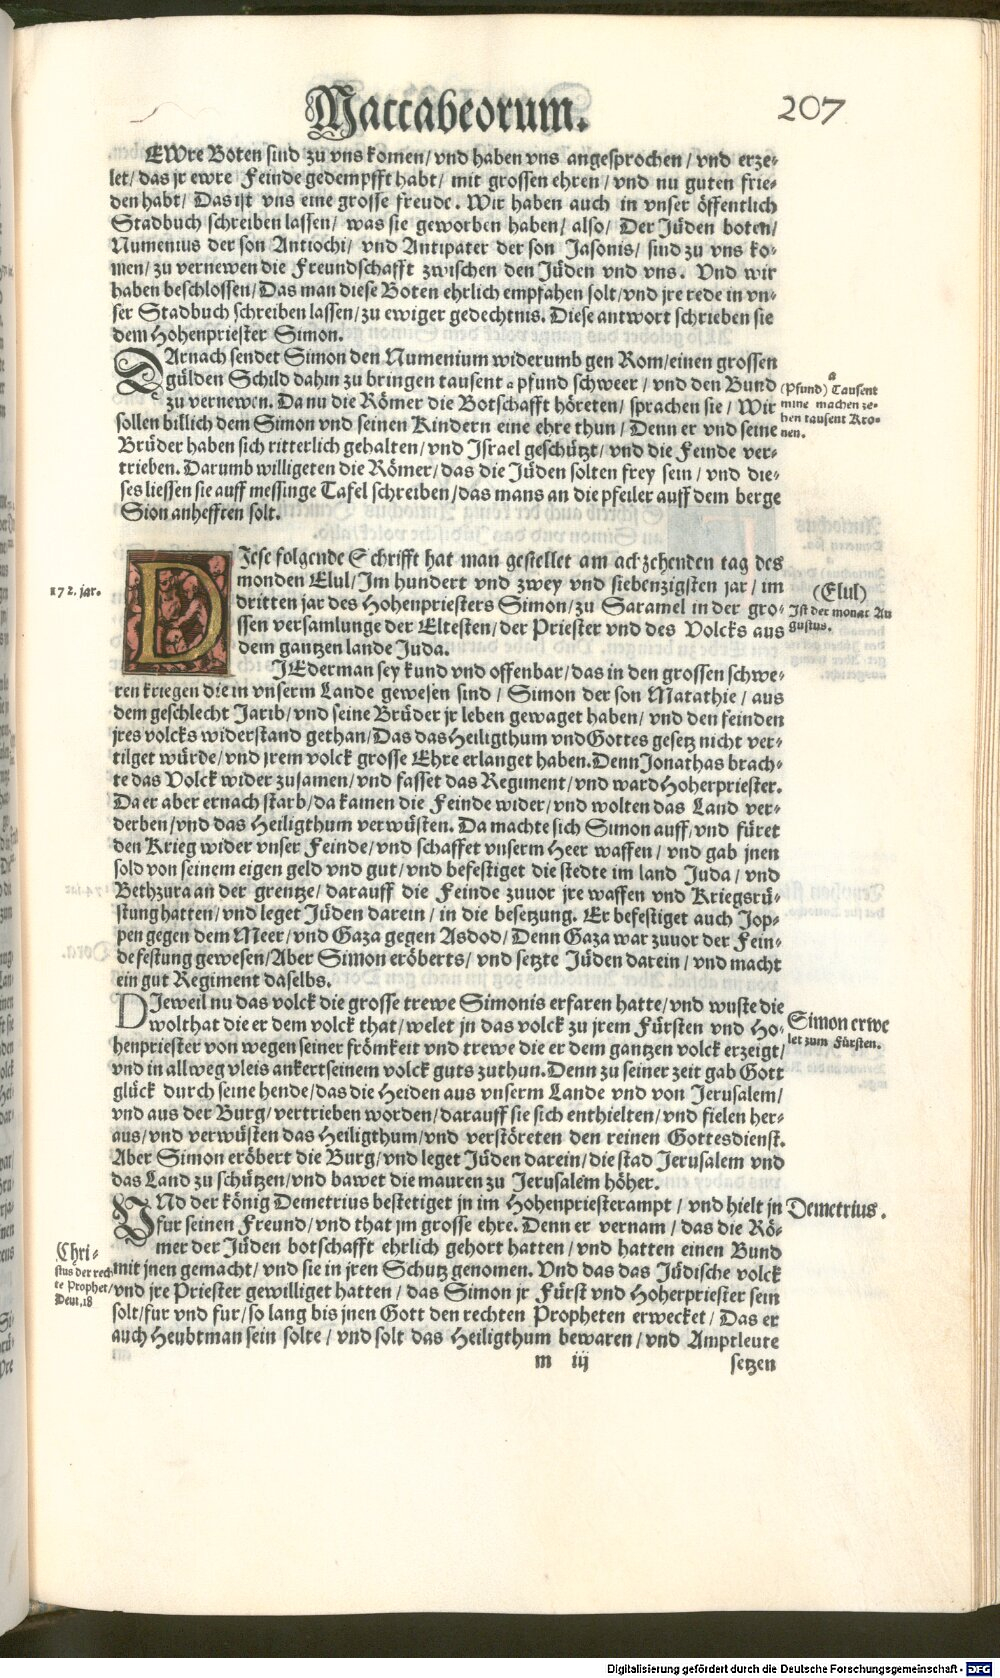 Maccabeorum.
207
EWre Boten sind zu vns komen/vnd haben vns angesprochen/vnd erze-
let/das jr ewre Feinde gedempfft habt/ mit grossen ehren/vnd nu guten frie-
den habt/ Das ist vns eine grosse freude. Wir haben auch in vnser öffentlich
Stadbuch schreiben lassen/ was sie geworben haben/ also/ Der Jüden boten/
Numenius der son Antiochi/ vnd Antipater der son Jasonis/ sind zu vns ko-
men/zu vernewen die Freundschafft zwischen den Jüden vnd vns. Vnd wir
haben beschlossen/Das man diese Boten ehrlich empfahen solt/vnd jre rede in vn-
ser Stadbuch schreiben lassen/zu ewiger gedechtnis. Diese antwort schrieben sie
dem Hohenpriester Simon.
DArnach sendet Simon den Numenium widerumb gen Rom/einen grossen
gülden Schild dahin zu bringen tausent a pfund schweer/vnd den Bund
zu vernewen. Da nu die Römer die Botschafft höreten/sprachen sie/Wir
sollen billich dem Simon vnd seinen Kindern eine ehre thun/Denn er vnd seine
Brüder haben sich ritterlich gehalten/vnd Israel geschützt/vnd die Feinde ver-
trieben. Darumb willigeten die Römer/das die Jüden solten frey sein/vnd die-
ses liessen sie auff messinge Tafel schreiben/das mans an die pfeiler auff dem berge
Sion anhefften solt.
a
(Pfund) Tausent
mine machen ze-
hen tausent Kro-
nen.
DJese folgende Schrifft hat man gestellet am achzehenden tag des
monden Elul/Im hundert vnd zwey vnd siebenzigsten jar/im
dritten jar des Hohenpriesters Simon/zu Saramel in der gro-
ssen versamlunge der Eltesten/der Priester vnd des Volcks aus
dem gantzen lande Juda.
172. jar.
(Elul)
Ist der monat Au
gustus.
JEderman sey kund vnd offenbar/das in den grossen schwe-
ren kriegen die in vnserm Lande gewesen sind/Simon der son Matathie/aus
dem geschlecht Jarib/vnd seine Brüder jr leben gewaget haben/vnd den feinden
jres volcks widerstand gethan/Das das Heiligthum vnd Gottes gesetz nicht ver-
tilget würde/vnd jrem volck grosse Ehre erlanget haben. Denn Jonathas brach-
te das Volck wider zusamen/vnd fasset das Regiment/vnd ward Hoherpriester.
Da er aber ernach starb/da kamen die Feinde wider/vnd wolten das Land ver-
derben/vnd das Heiligthum verwüsten. Da machte sich Simon auff/vnd füret
den Krieg wider vnser Feinde/vnd schaffet vnserm Heer waffen/vnd gab jnen
sold von seinem eigen geld vnd gut/vnd befestiget die stedte im land Juda/vnd
Bethzura an der grentze/darauff die Feinde zuuor jre waffen vnd Kriegsrü-
stung hatten/vnd leget Jüden darein/in die besetzung. Er befestiget auch Jop-
pen gegen dem Meer/vnd Gaza gegen Asdod/Denn Gaza war zuuor der Fein-
de festung gewesen/Aber Simon eröberts/vnd setzte Jüden darein/vnd macht
ein gut Regiment daselbs.
DJeweil nu das volck die grosse trewe Simonis erfaren hatte/vnd wuste die
wolthat die er dem volck that/welet jn das volck zu jrem Fürsten vnd Ho-
henpriester von wegen seiner frömkeit vnd trewe die er dem gantzen volck erzeigt/
vnd in allweg vleis ankert seinem volck guts zuthun. Denn zu seiner zeit gab Gott
glück durch seine hende/das die Heiden aus vnserm Lande vnd von Jerusalem/
vnd aus der Burg/vertrieben worden/darauff sie sich enthielten/vnd fielen her-
aus/vnd verwüsten das Heiligthum/vnd verstöreten den reinen Gottesdienst.
Aber Simon eröbert die Burg/vnd leget Jüden darein/die stad Jerusalem vnd
das Land zu schützen/vnd bawet die mauren zu Jerusalem höher.
Simon erwe
let zum Fürsten.
VNd der könig Demetrius bestetiget jn im Hohenpriesterampt/vnd hielt jn
fur seinen Freund/vnd that jm grosse ehre. Denn er vernam/das die Rö-
mer der Jüden botschafft ehrlich gehort hatten/vnd hatten einen Bund
mit jnen gemacht/vnd sie in jren Schutz genomen. Vnd das das Jüdische volck
vnd jre Priester gewilliget hatten/das Simon jr Fürst vnd Hoherpriester sein
solt/fur vnd fur/so lang bis jnen Gott den rechten Propheten erwecket/Das er
auch Heubtman sein solte/vnd solt das Heiligthum bewaren/vnd Amptleute
Demetrius.
(Chri-
stus der rech
te Prophet/
Deut.18
m iij
setzen
Digitalisierung gefördert durch die Deutsche Forschungsgemeinschaft - DFG